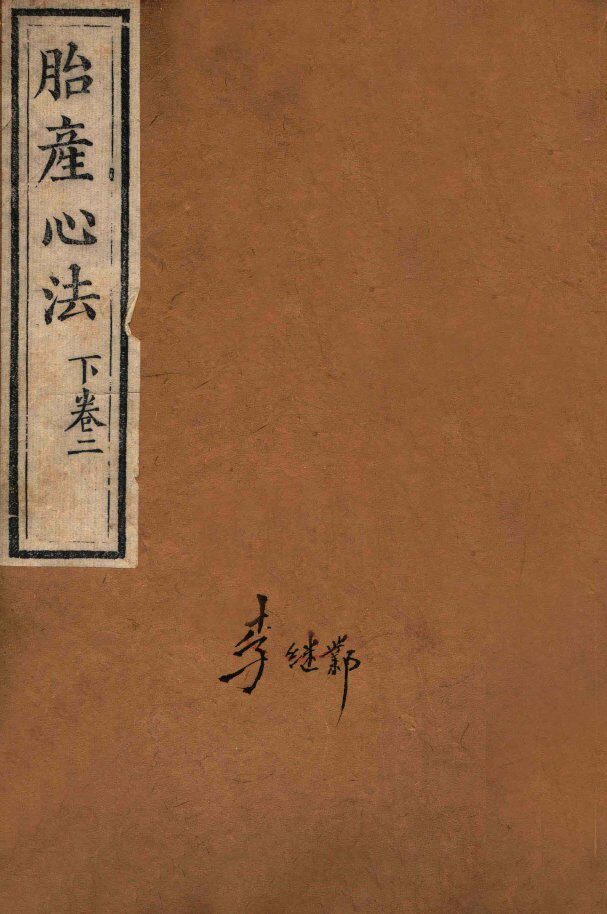 胎產心法
下卷二
李继鄴